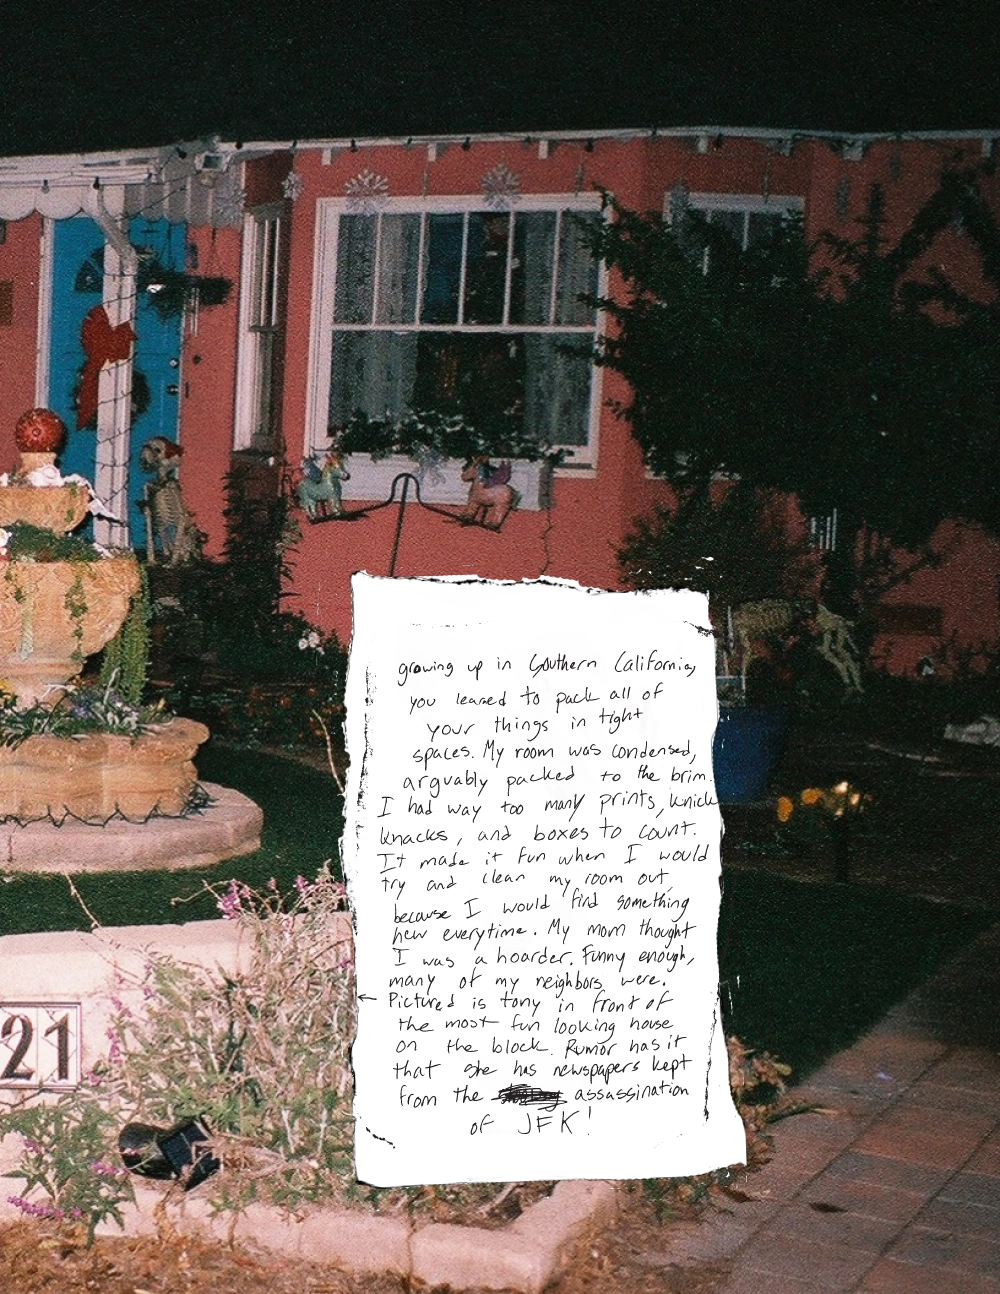 growing up in Southern California,
you learned to pack all of
your things in tight
spaces. My room was condensed,
arguably packed to the brim.
I had way too many prints, knick
knacks, and boxes to count.
It made it fun when I would
try and clean my room out,
because I would find something
new everytime. My mom thought
I was a hoarder. Funny enough,
many of my neighbors were.
← Pictured is tony in front of
the most fun looking house
on the block. Rumor has it
that she has newspapers kept
from the assassination
of JFK!
21